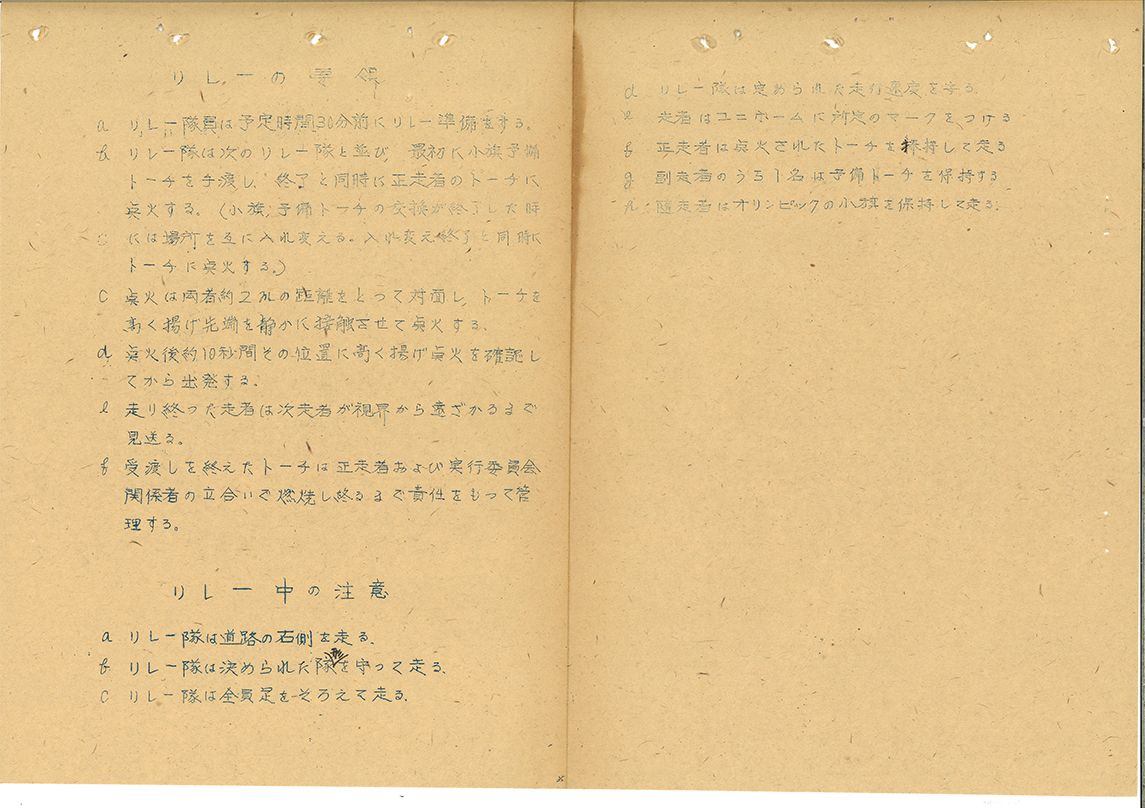 リレーの要領
a リレー隊員は予定時間30分前にリレー準備をする。
b リレー隊は次のリレー隊と並び、最初に小旗予備
トーチを手渡し、終了と同時に正走者のトーチに
点火する。(小旗、予備トーチの交換が終了した時
c には場所を互に入れ変える。入れ変え終了と同時に
トーチに点火する。)
c 点火は両者約2mの距離をとって対面し、トーチを
高く揚げ先端を静かに接触させて点火する、
d 点火後約10秒間その位置に高く揚げ点火を確認し
てから出発する。
e 走り終った走者は次走者が視界から遠ざかるまで
見送る。
f 受渡しを終えたトーチは正走者および実行委員会
関係者の立合いで燃焼し終るまで責任をもって管
理する。
リレー中の注意
a リレー隊は道路の右側を走る、
b リレー隊は決められた隊形を守って走る、
c リレー隊は全員足をそろえて走る、
d リレー隊は定められた走行速度を守る、
e 走者はユニホームに所定のマークをつける
f 正走者は点火されたトーチを捧持して走る
g 副走者のうち1名は予備トーチを保持する
h 随走者はオリンピックの小旗を保持して走る。